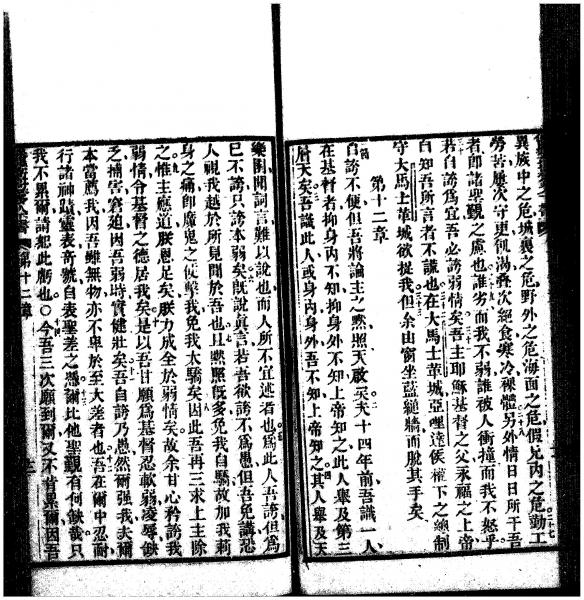 異族中之危城裏之危野外之危海面之危假兄內之危勤工
勞苦屢次守更飢渴叠次絕食寒冷裸體另外情日日所干吾
者卽諸聖覲之慮也誰劣而我不弱誰被人衝撞而我不怒乎
若自謗爲宜吾必謗弱情矣吾主耶穌基督之父永福之上帝
白知吾所言者不謊也在大馬士革城亞哩達侯權下之總制
守大馬士革城欲捉我但余由窗坐藍縋牆而脫其手矣
第十二章
自謗不便但吾將論主之黙照天啟矣夫十四年前吾識一人
在基督者抑身內不知抑身外不知上帝知之此人舉及第三
層天矣吾識此人或身內身外吾不知上帝知之其人舉及天
樂囿聞詞言難以說也而人所不宜述者也爲此人吾謗但爲
己不謗只謗本弱矣旣說眞言若吾欲謗不爲愚但吾免議恐
人視我越於所見聞於吾也且黙照旣多免我自驕故加我莿
身之痛卽魔鬼之使擊我免我太驕矣因此吾再三求上主除
之惟主應道朕恩足矣朕力成全於弱情矣故余甘心矜謗我
弱情令基督之德居我矣是以吾甘願爲基督忍軟弱凌辱缺
乏捕害窘迫因吾弱時實健壯矣吾自謗乃愚然爾強我夫爾
本當薦我因吾雖無物亦不卑於至大差者也吾在爾中忍耐
行諸神蹟靈表奇號自表聖差之憑爾比他聖覲有何缺哉只
我不累爾請恕此虧也○今吾三次願到爾又不肯累爾因吾
第十二章